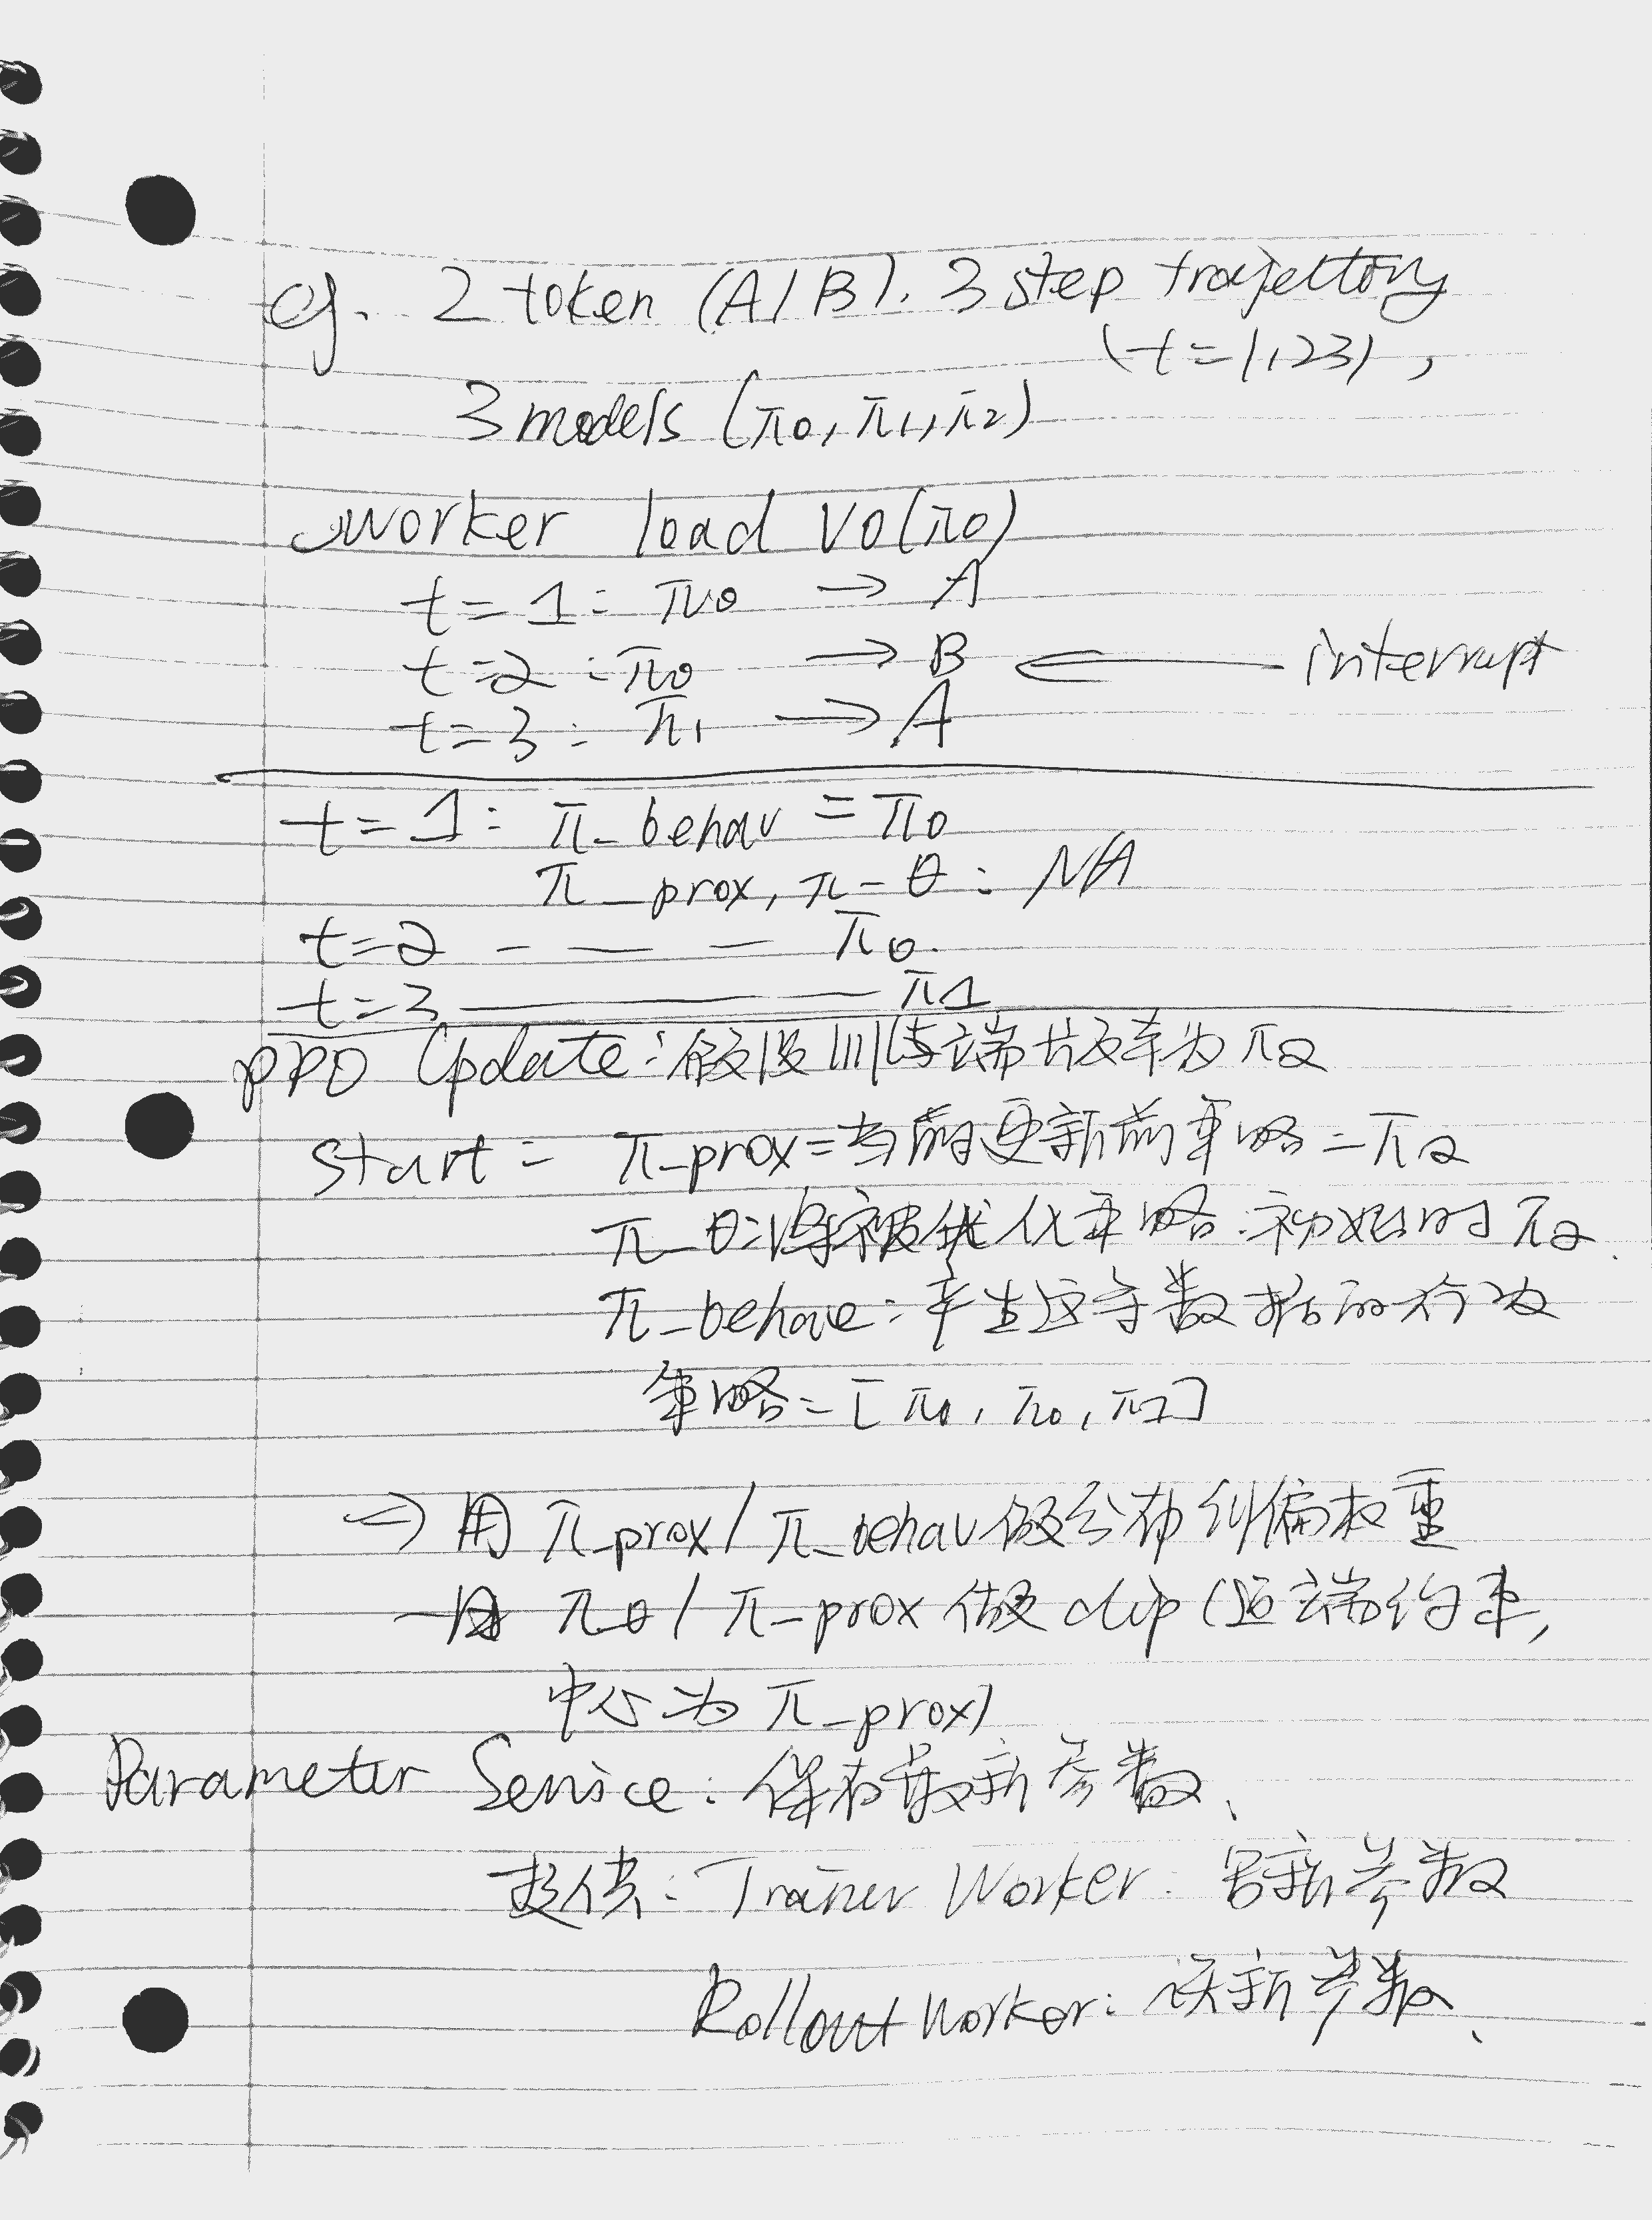 eg. 2 token (A/B). 3 step trajectory
(t=1,23),
3 models (π0, π1, π2)
worker load V0(π0)
t=1: π0 → A
t=2: π0 → B ← interrupt
t=3: π1 → A
t=1: π_behav = π0
π_prox, π-θ: NA
t=2 - — — π0.
t=3 ——— π1
PPO Update: 假设训练端版本为 π2
Start: π_prox=当前更新前策略=π2
π_θ:将被优化策略:初始时π2.
π_behave:产生这条数据的行为
策略=[π0, π0, π1]
⇒ 用 π_prox/π_behav做分布纠偏权重
一用 π_θ/π_prox 做 clip (近端约束,
中心为 π_prox)
Parameter Service: 保存最新参数、
提供: Trainer Worker: 写新参数
Rollout Worker: 读新参数、